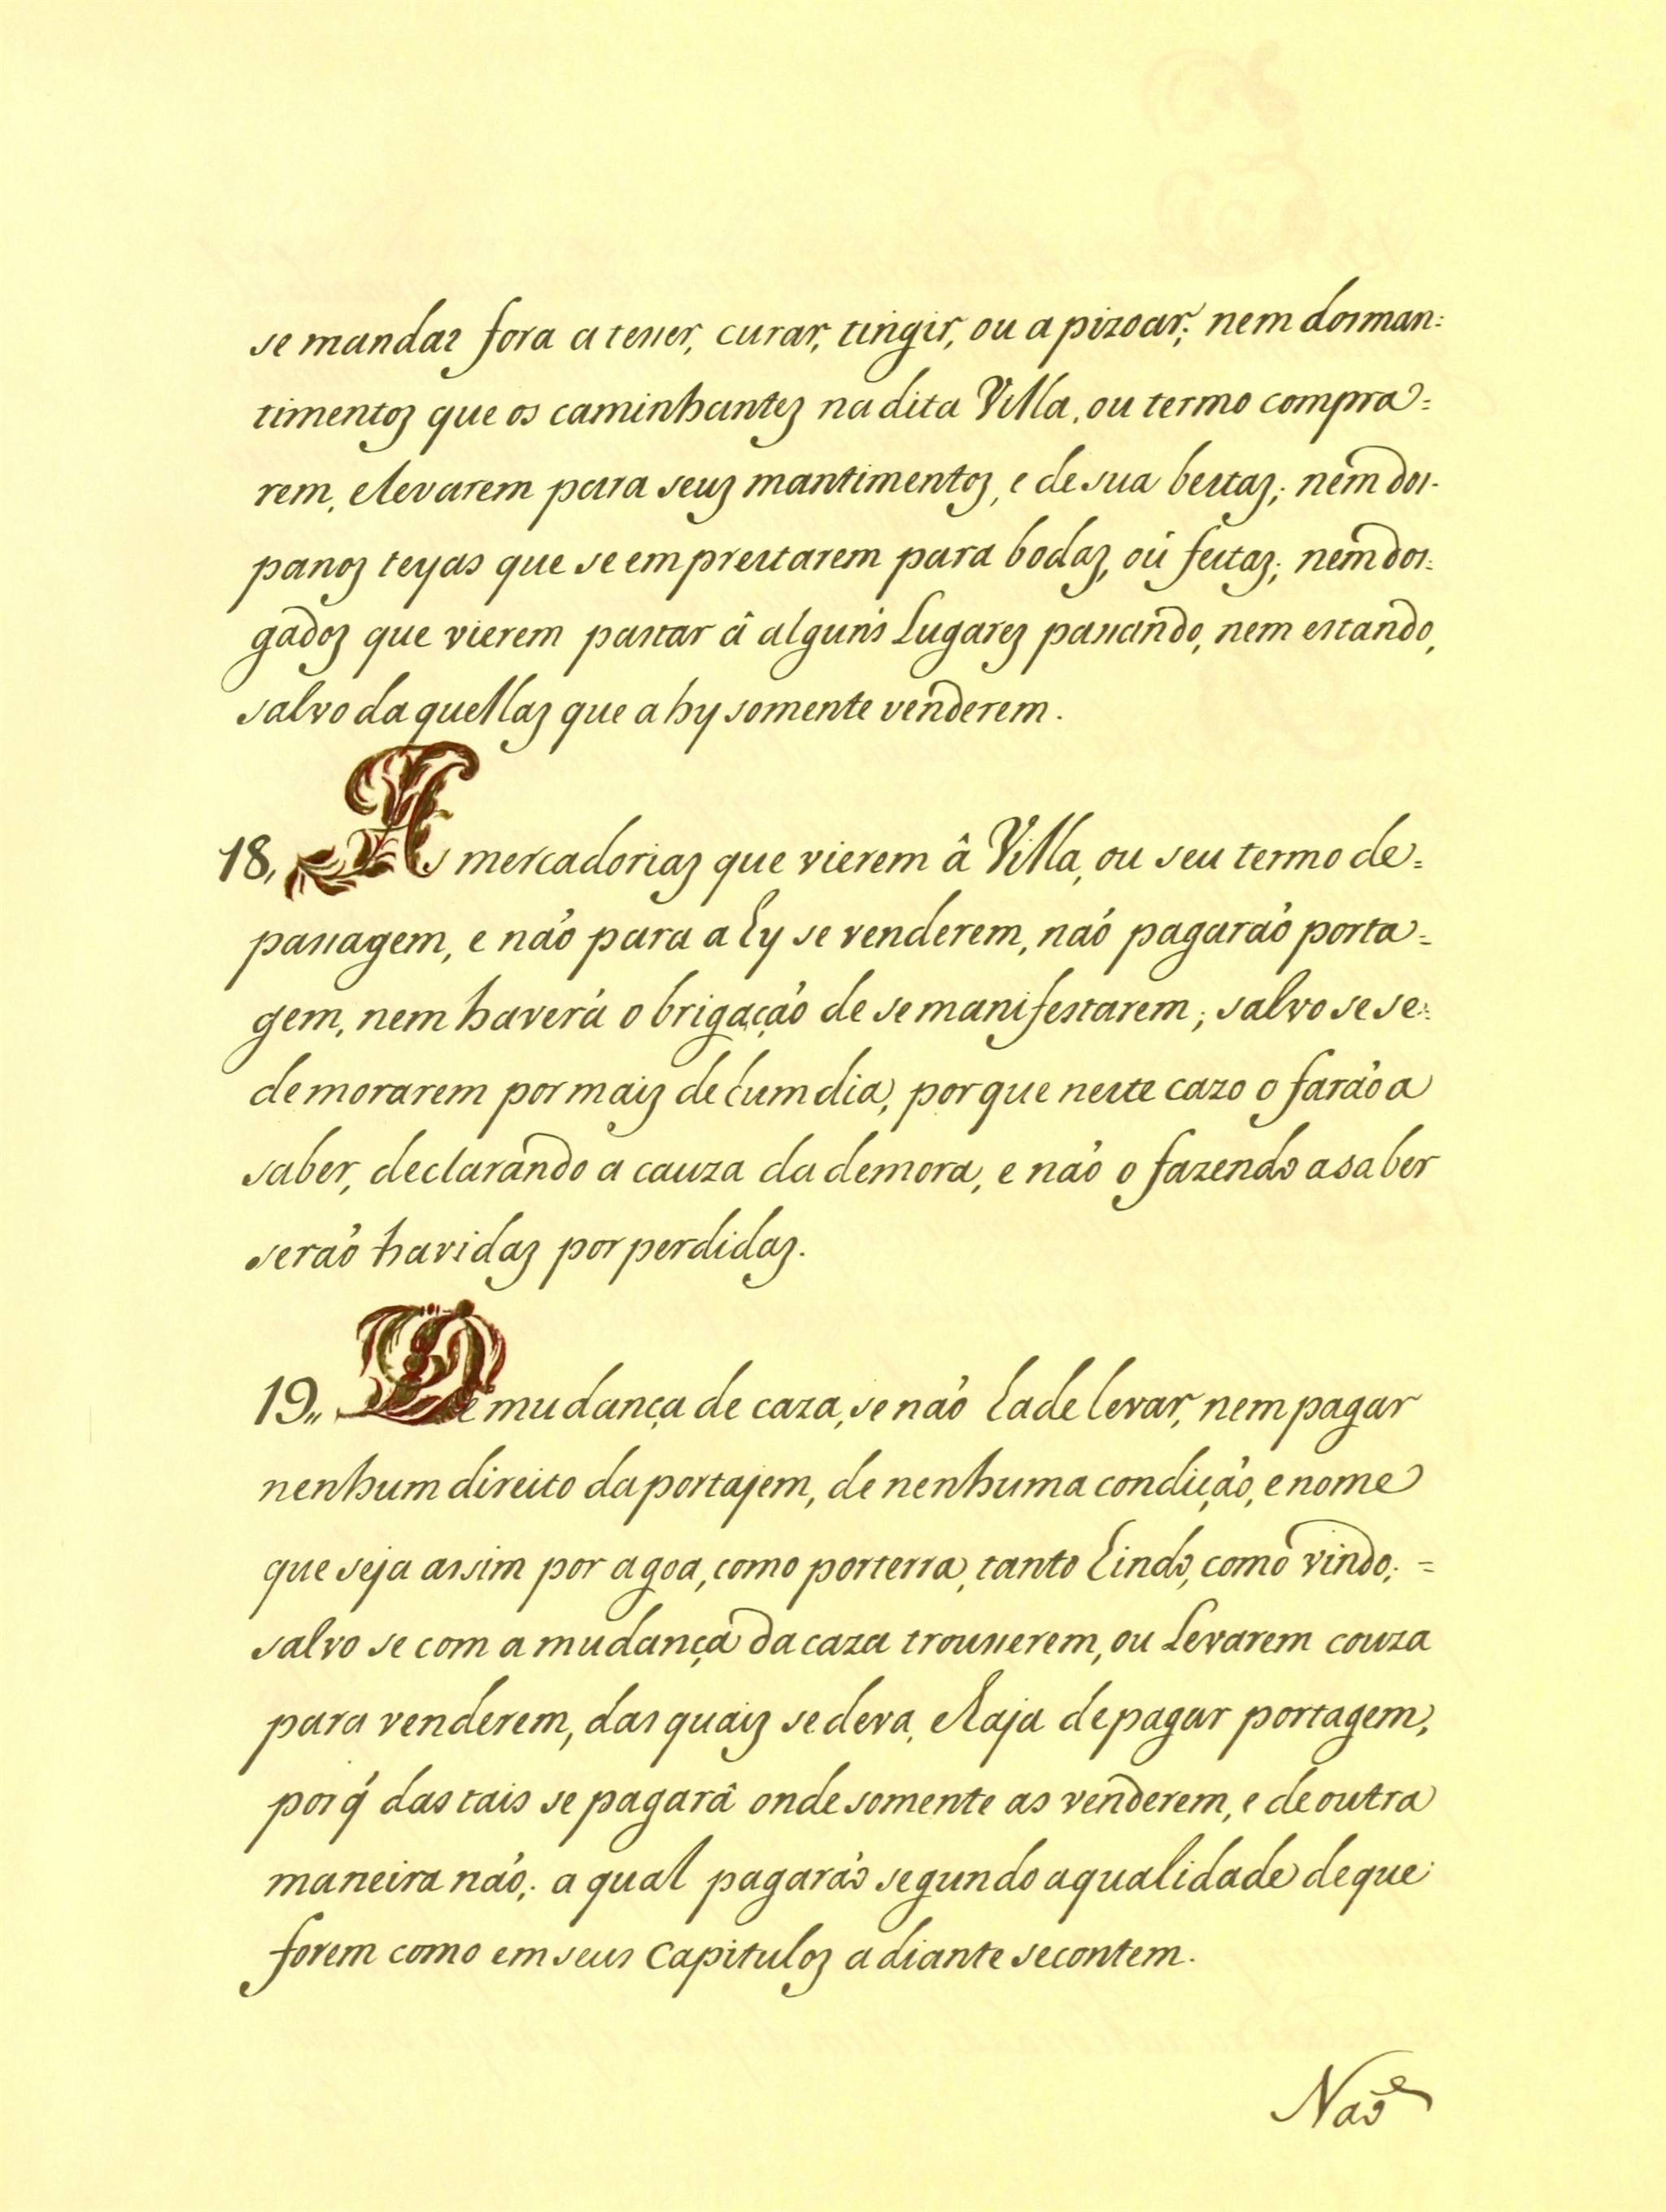 se mandar fora a tesser, curar, tingir, ou a pizoar; nem dos man:
timentos que os caminhantes na dita Villa, ou termo compra=
rem, e levarem para seus mantimentos, e de sua bestas; nem dos-
panos teyas que se emprestarem para bodas, ou festas; nem dos:
gados que vierem pastar â alguns Lugares passando, nem estando,
salvo da quellas que a hy somente venderem.
18,, As mercadorias que vierem â Villa, ou seu termo de=
passagem, e não para a hy se venderem, não pagarão porta=
gem, nem haverá obrigação de se manifestarem; salvo se se:
demorarem por mais de hum dia, porque neste cazo o farão a
saber, declarando a cauza da demora, e não o fazendo a saber
serão havidas por perdidas.
19,, De mudança de caza, se não ha de levar, nem pagar
nenhum direito da portajem, de nenhuma condição, e nome
que seja assim por agoa, como por terra, tanto hindo, como vindo; =
salvo se com a mudança da caza trousserem, ou Levarem couza
para venderem, das quais se deva, e haja de pagar portagem,
porq́ das tais se pagarâ onde somente as venderem, e de outra
maneira não; a qual pagarão segundo a qualidade de que
forem como em seus Capitulos a diante se contem.
Não